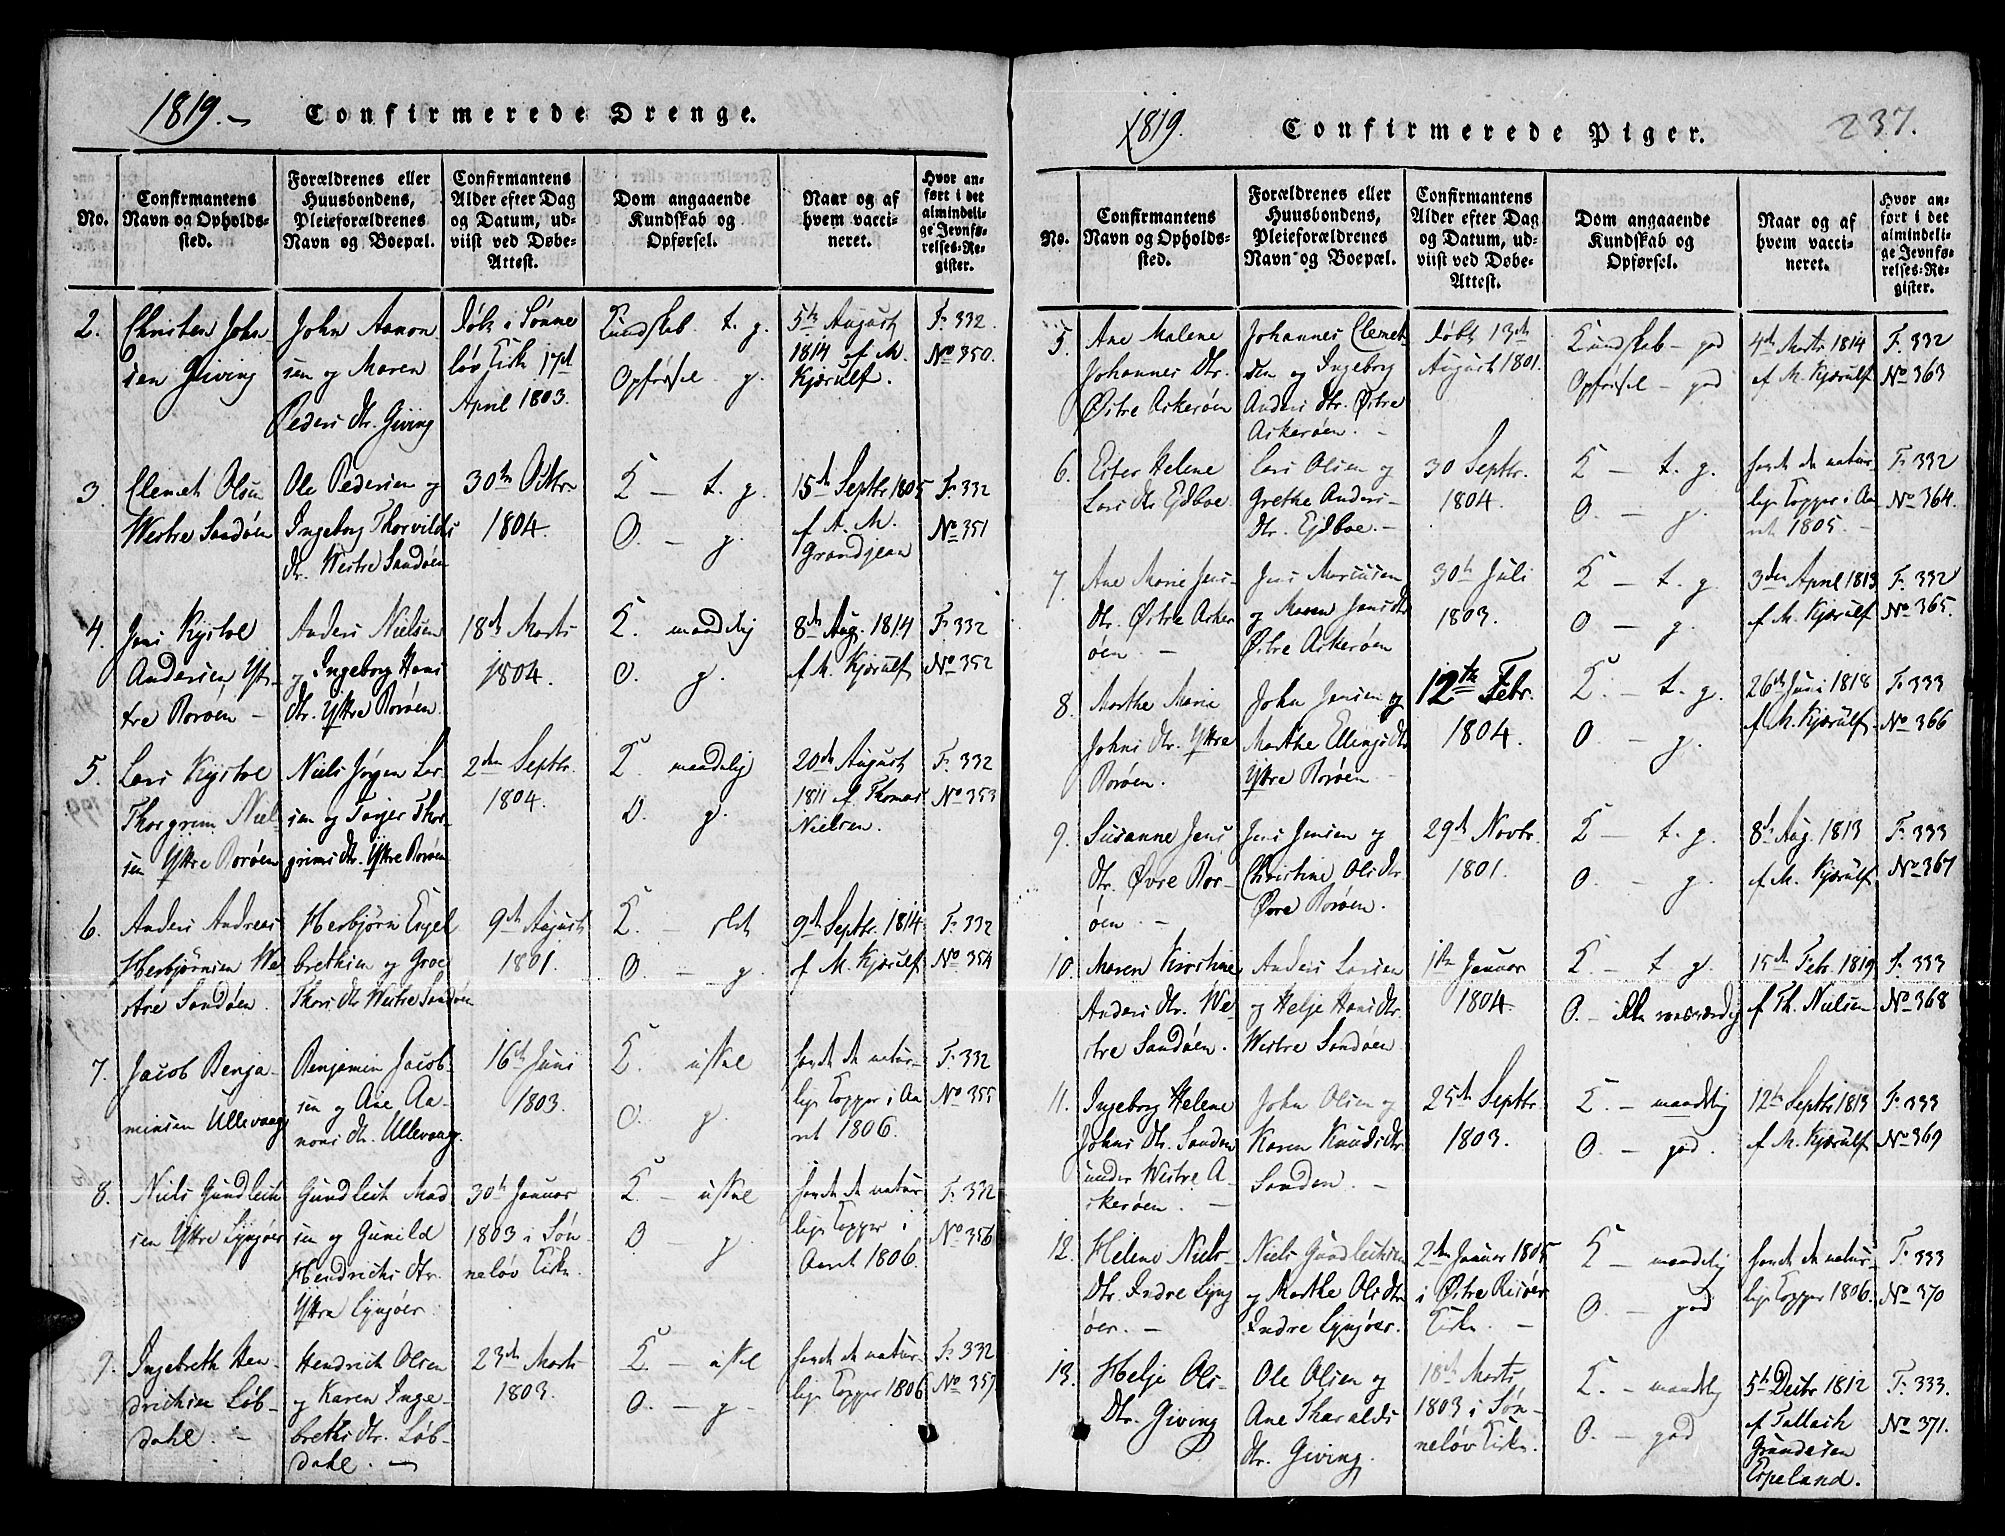 1819.
Confirmerede Drenge.
No.
Confirmantens
Navn og Opholds-
sted.
Forældrenes eller
Huusbondens,
Pleieforældrenes
Navn og Boepæl.
Confirmantens
Alder efter Dag
og Datum, ud-
viist ved Døbe-
Attest.
Dom angaaende
Kundskab og
Opførsel.
Naar og af
hvem vacci-
neret.
Hvor an-
ført i det
almindeli-
ge Jevnfø-
relses-Re-
gister.
2.
Christen John-
sen Giving
John Aanon
sen og Maren
Peders Dtr. Giving
døbt i Sønne
løv Kirk 17de
April 1803.
Kundskab. t. g.
Opførsel. g.
5te August
1814 af M.
Kjærulf.
F. 332.
No 350.
3
Clemet Olsen
Westre Sandøen
Ole Pedersen og
Ingeborg Thorvilds
Dtr. Westre Sandøen
30te Octbr
1804.
K — t. g.
O. — g.
15de Septbr 1805
af A. M.
Grandjean
F. 332
No 351
4
Jens Kystol
Andersen Yt-
tre Borøen —
Anders Nielsen
og Ingeborg Hans
Dtr. Yttre Borøen.
18de Marts
1804.
K. maadelig
O. g.
8de Aug. 1814
af M. Kjærulf
F. 332
No 352
5.
Lars Kystol
Thorgrim Niel-
sen Yttre Borøen
Niels Jørgen Lar
sen og Torjer Thor-
grims Dtr. Yttre Borøen
2den Septbr.
1804.
K maadelig
O. g.
20de August
1811 af Thomas
Nielsen.
F. 332
No 353
6.
Anders Andreas
Herbjørnsen We
stre Sandøen.
Herbjørn Engel
brethsen og Groe
Thors Dtr Westre Sandøen
9de August
1801.
K. — slet
O. — g.
9de Septbr. 1814
af M. Kjærulf
F. 332
No 354
7.
Jacob Benja-
minsen Ullevaag
Benjamin Jacob-
sen og Ane Aa-
nons Dtr. Ullevaag.
16de Juni
1803.
K. uskel
O. g.
havde de natur-
lige Kopper i Aa
ret 1806.
F. 332
No 355
8.
Niels Gundleik
sen Yttre Lyngøer
Gundleik Mad
sen og Gunild
Hendrichs Dtr.
Yttre Lyngøer.
30te Januar
1803 i Søn-
neløv Kirke.
K. — uskel
O g.
havde de natur
lige Kopper i
Aaret 1806.
F. 332
No 356
9.
Ingebreth Hen-
drichsen Løb-
dahl. —
Hendrich Olsen
og Karen Inge-
breths Dtr. Løb-
dahl. —
23de Marts
1803.
K. — uskel
O. — g —
havde de natur-
lige Kopper 1806
F. 332
No 357
1819.
Confirmerede Piger.
237.
No.
Confirmantens
Navn og Opholds-
sted.
Forældrenes eller
Huusbondens,
Pleieforældrenes
Navn og Boepæl.
Confirmantens
Alder efter Dag
og Datum, ud-
viist ved Døbe-
Attest.
Dom angaaende
Kundskab og
Opførsel.
Naar og af
hvem vacci-
neret.
Hvor an-
ført i det
almindeli-
ge Jevnfø-
relses-Re-
gister.
5.
Ane Malene
Johannes Dtr.
Østre Askerøen
Johannes Clemet-
sen og Ingeborg
Anders Dtr. Østre
Askerøen. —
døbt 13de
August 1801.
Kundskab — god
Opførsel — god
4de Marts 1814
af M. Kjærulf
F. 332
No 363
6.
Ester Helene
Lars Dtr Ejdboe
Lars Olsen og
Grethe Anders-
Dtr. Ejdboe. —
30 Septbr.
1804.
K — t. g.
O. — g.
havde de natur-
lige Kopper i Aa
ret 1805. —
F. 332
No 364.
7.
Ane Marie Jens-
Dtr. Østre Asker
øen. —
Jens Marcusen
og Maren Jens Dtr
Østre Askerøen
30te Juli
1803.
K — t. g.
O — g.
3den April 1813
af M. Kjærulf
F. 332
No 365.
8.
Marthe Marie
Johns Dtr. Yttre
Borøen.
John Jensen og
Marthe Ellings Dtr
Yttre Borøen —
12te Febr.
1804.
K. — t. g.
O. — g.
26de Juni 1818
af M. Kjærulf
F. 333
No 366
9.
Susanne Jens
Dtr. Øvre Bor-
øen —
Jens Jensen og
Christine Ols Dtr
Øvre Borøen.
29de Novbr.
1801.
K — t. g.
O. — g.
8de Aug. 1813
af M. Kjærulf
F. 333
No 367
10.
Maren Kirstine
Anders Dtr. We-
stre Sandøen.
Anders Larsen
og Helje Hans Dtr.
Westre Sandøen
1ste Januar
1804.
K. — t. g.
O. — ikke roesværdig
15de Febr. 1819
af Th. Nielsen
F. 333
No 368
11.
Ingeborg Helene
Johns Dtr. Sanden
under Westre A-
skerøen. —
John Olsen og
Karen Knuds Dtr.
Sanden. —
25de Septbr.
1803.
K. — maadelig
O. — god.
12te Septbr 1813
af M. Kjærulf
F. 333
No 369
12.
Helene Niels-
Dtr. Indre Lyng
øer. —
Niels Gundleiksen
og Marthe Ols Dtr
Indre Lyngøer.
2den Januar 1805
i Østre Risøer
Kirke. —
K — maadelig
O. — god
havde de natur-
lige Kopper 1806.
F. 333
No 370
13.
Helje Ols-
Dtr. Giving
Ole Olsen og
Ane Tharalds
Dtr. Giving.
18de Marts
1803 i Søn-
neløv Kirke.
K. — maadelig
O. — god
5te Decbr 1812
af Tallach
Gundersen
Espeland.
F. 333.
No 371.